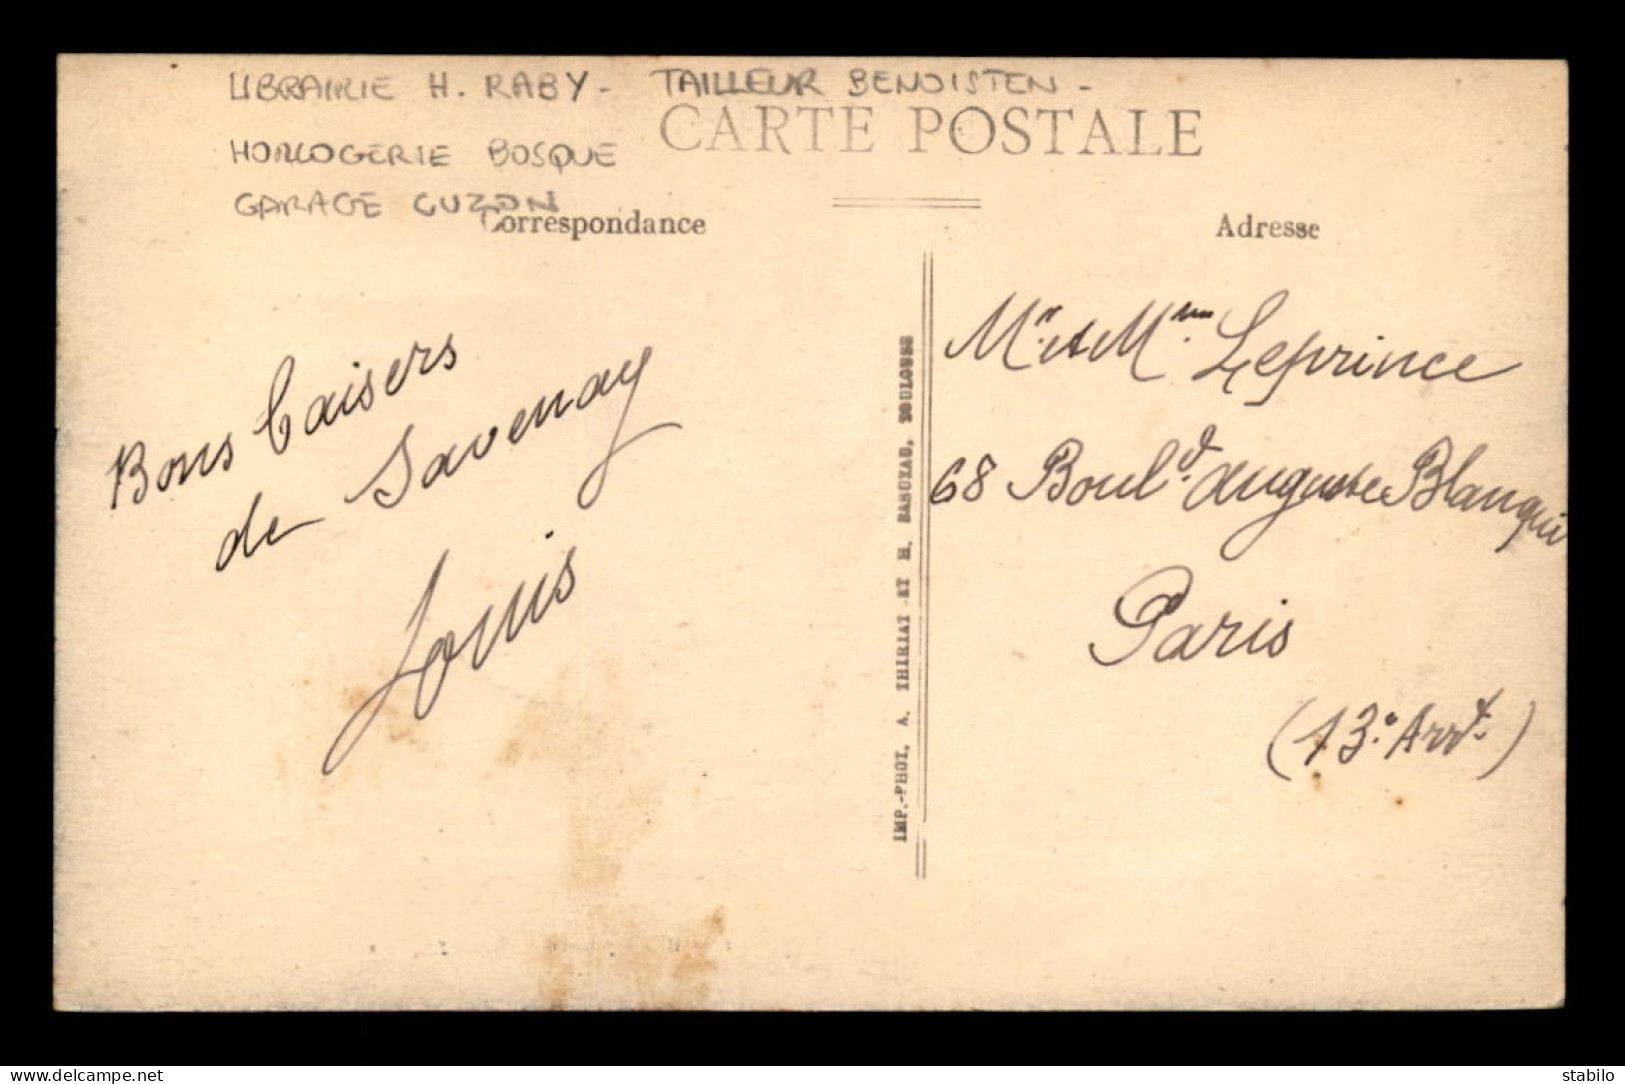 LIBRAIRIE H. RABY - TAILLEUR BENOISTEN -
CARTE POSTALE
HORLOGERIE BOSQUE
GARAGE CUZON
Correspondance
Adresse
Bons baisers
de Savenay
Louis
IMP.-PHOT. A. THIRIAT ET H. BASUYAU, TOULOUSE
Mr et Mme Leprince
68 Boul.d Auguste Blanqui
Paris
(13e Arrt.)
www.delcampe.net
stabilo